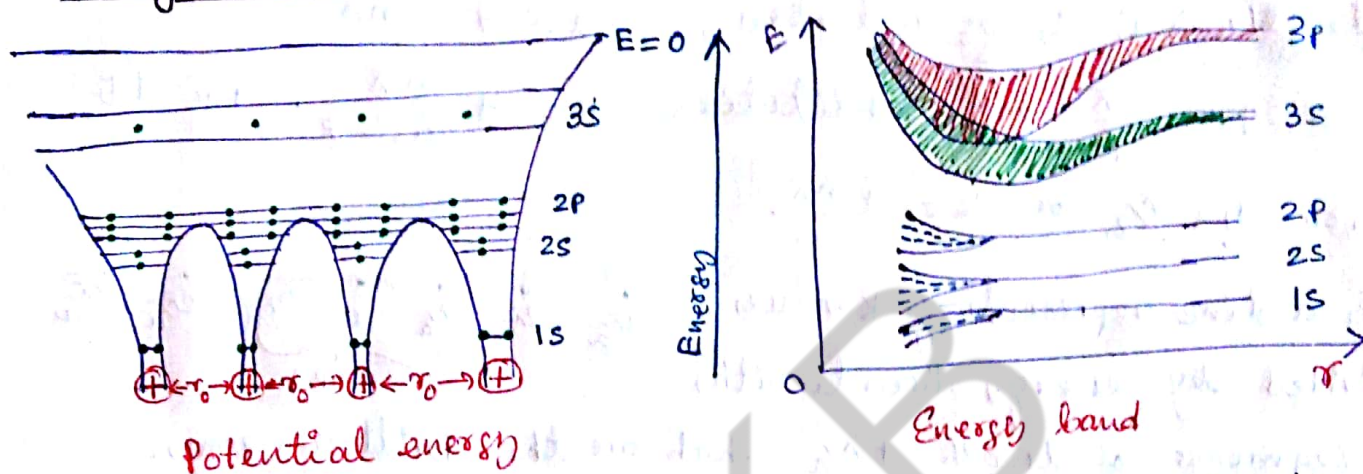 E=0
3S
2P
2S
1S
+ r₀ + r₀ + r₀ +
Potential energy
Energy
E
3p
3S
2P
2S
1S
0
r
Energy band